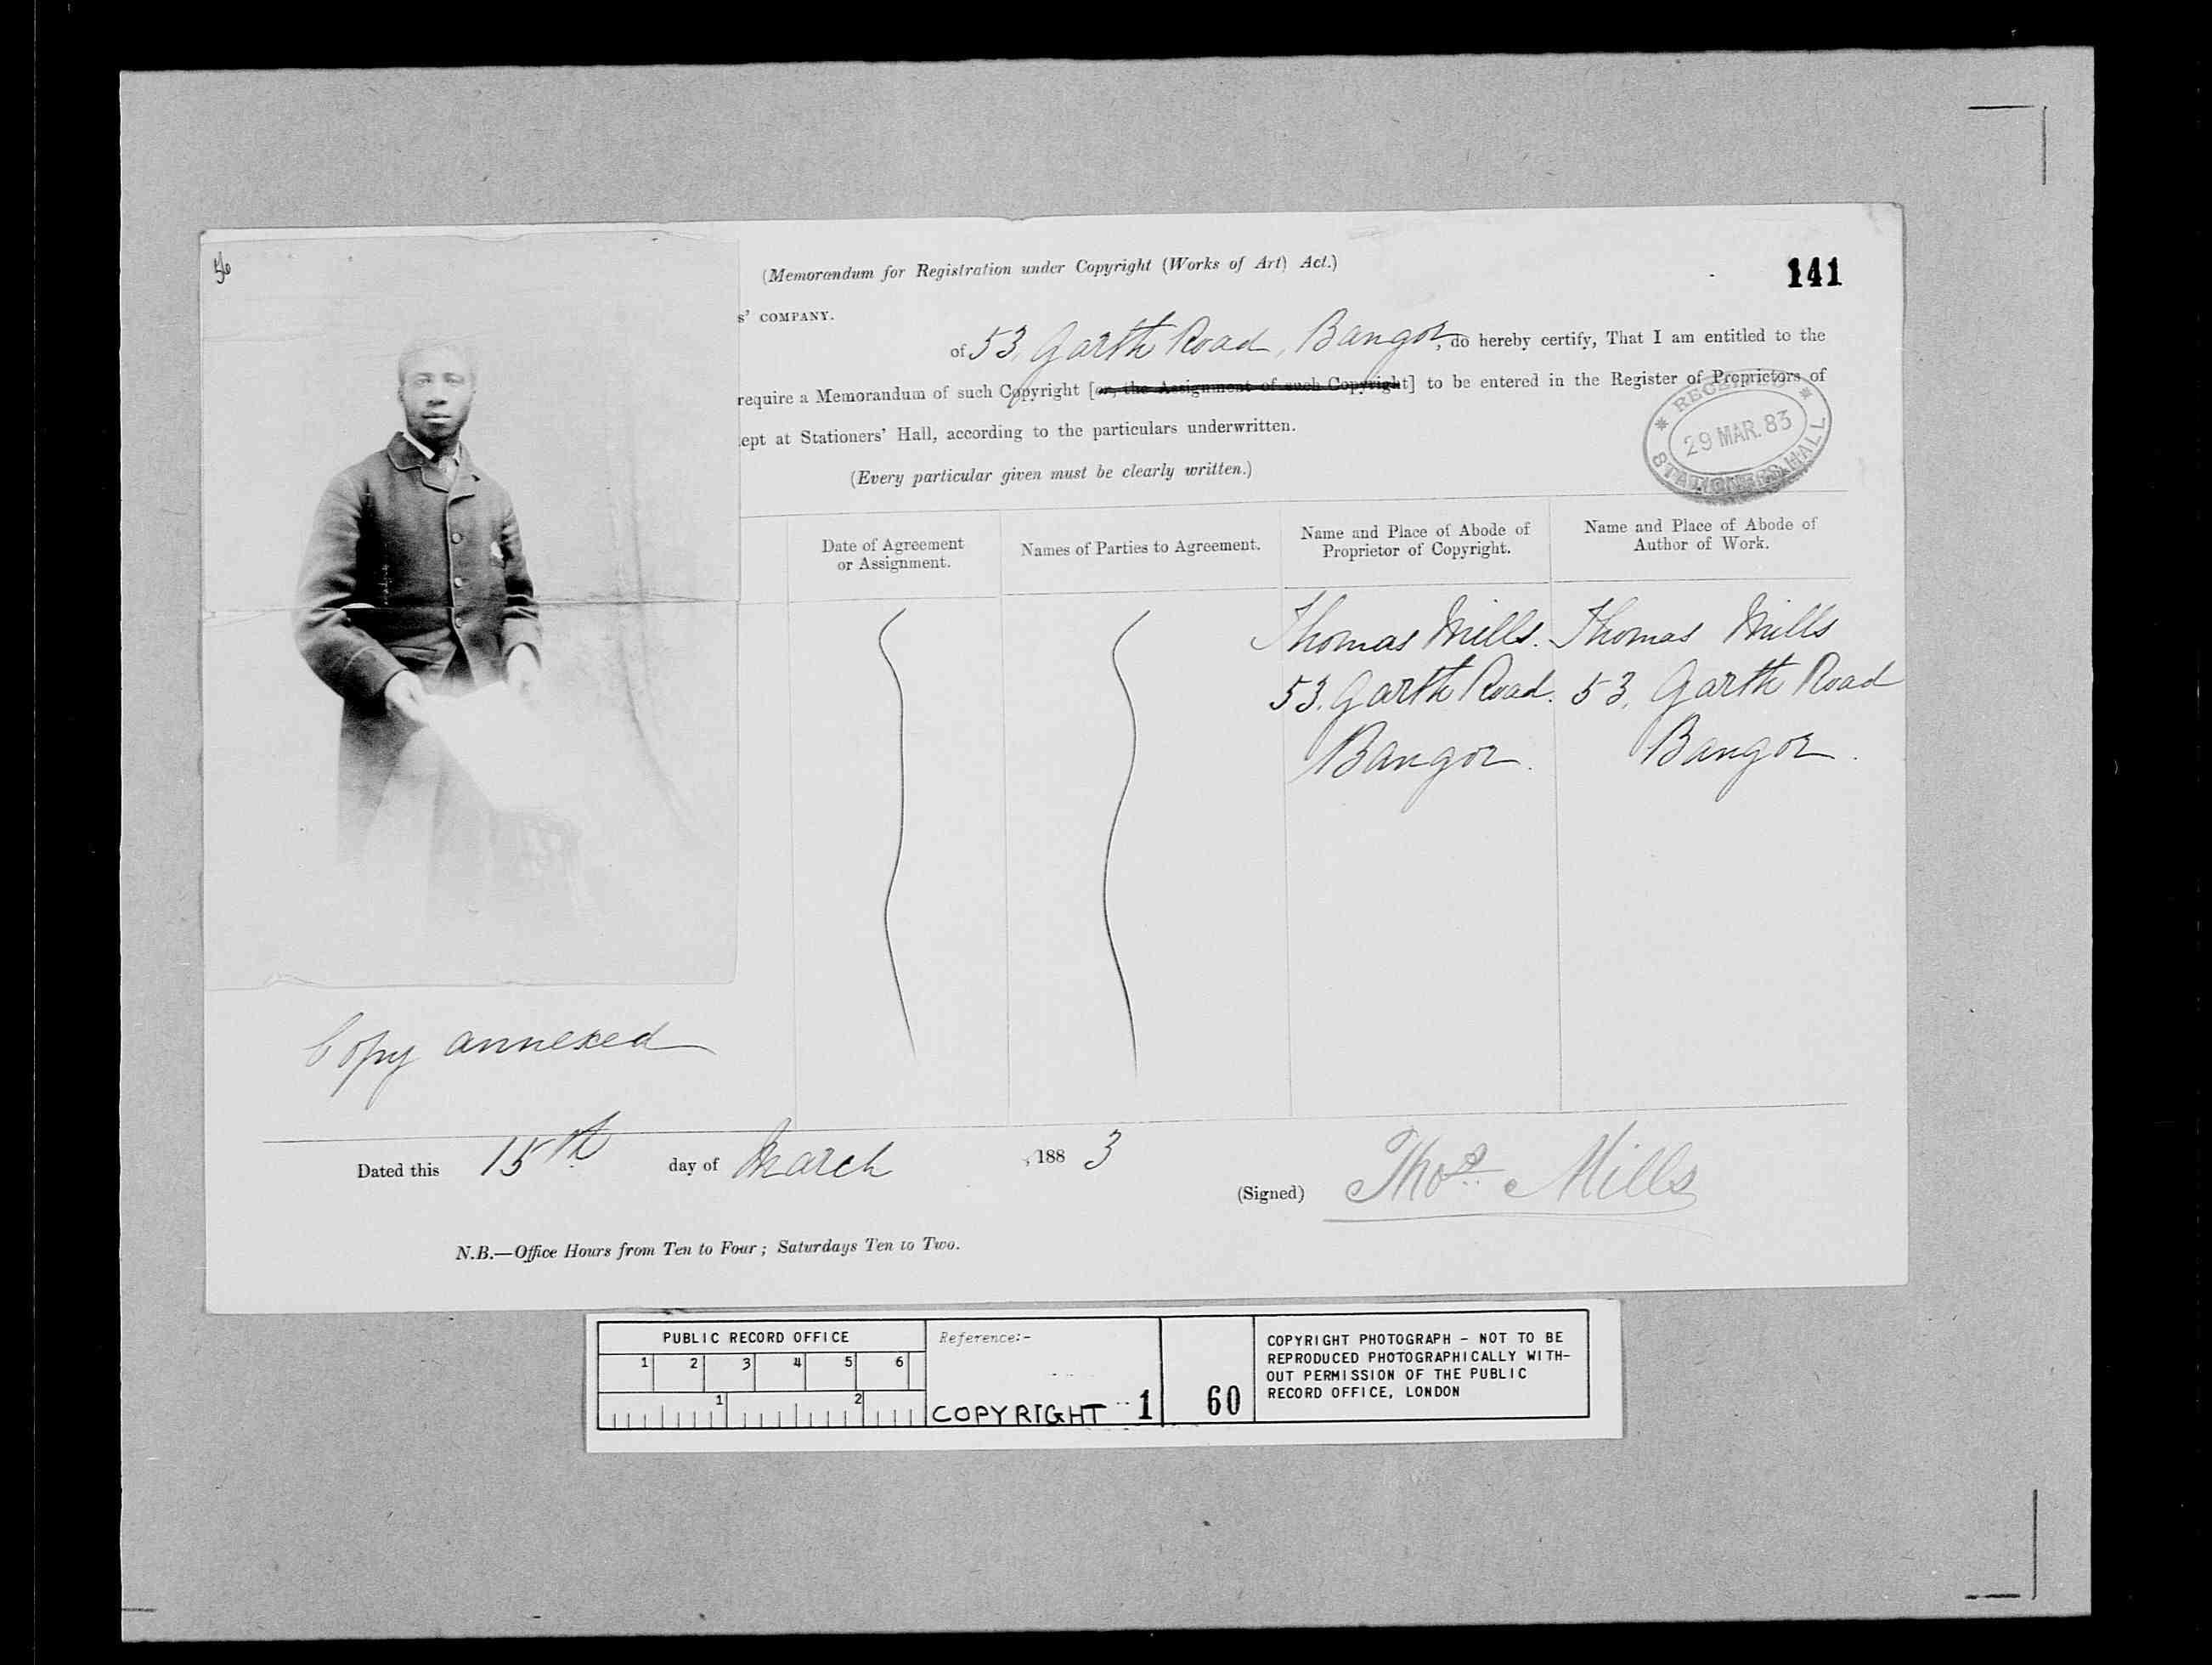 56
(Memorandum for Registration under Copyright (Works of Art) Act.)
141
s' COMPANY.
of 53, Garth Road, Bangor, do hereby certify, That I am entitled to the
require a Memorandum of such Copyright [or, the Assignment of such Copyright] to be entered in the Register of Proprietors of
ept at Stationers' Hall, according to the particulars underwritten.
(Every particular given must be clearly written.)
RECEIVED
29 MAR. 83
STATIONERS HALL
Date of Agreement
or Assignment.
Names of Parties to Agreement.
Name and Place of Abode of
Proprietor of Copyright.
Name and Place of Abode of
Author of Work.
Thomas Mills.
53. Garth Road.
Bangor.
Thomas Mills
53, Garth Road
Bangor.
Copy annexed
Dated this 15th day of March, 1883
(Signed) Thos. Mills
N.B.—Office Hours from Ten to Four; Saturdays Ten to Two.
PUBLIC RECORD OFFICE
1 2 3 4 5 6
1 2
Reference:-
COPYRIGHT 1
60
COPYRIGHT PHOTOGRAPH - NOT TO BE
REPRODUCED PHOTOGRAPHICALLY WITH-
OUT PERMISSION OF THE PUBLIC
RECORD OFFICE, LONDON